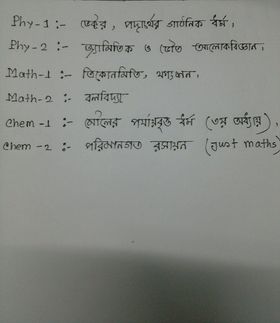 Phy-1 :- ভেক্টর, পদার্থের গাঠনিক ধর্ম।
Phy-2 :- জ্যামিতিক ও ভৌত আলোকবিজ্ঞান।
Math-1 :- ত্রিকোনমিতি,
Math-2 :- বলবিদ্যা
Chem-1 :- মৌলের পর্যায়বৃত্ত ধর্ম (৩য় অধ্যায়),
Chem-2 :- পরিমানগত রসায়ন (just maths)